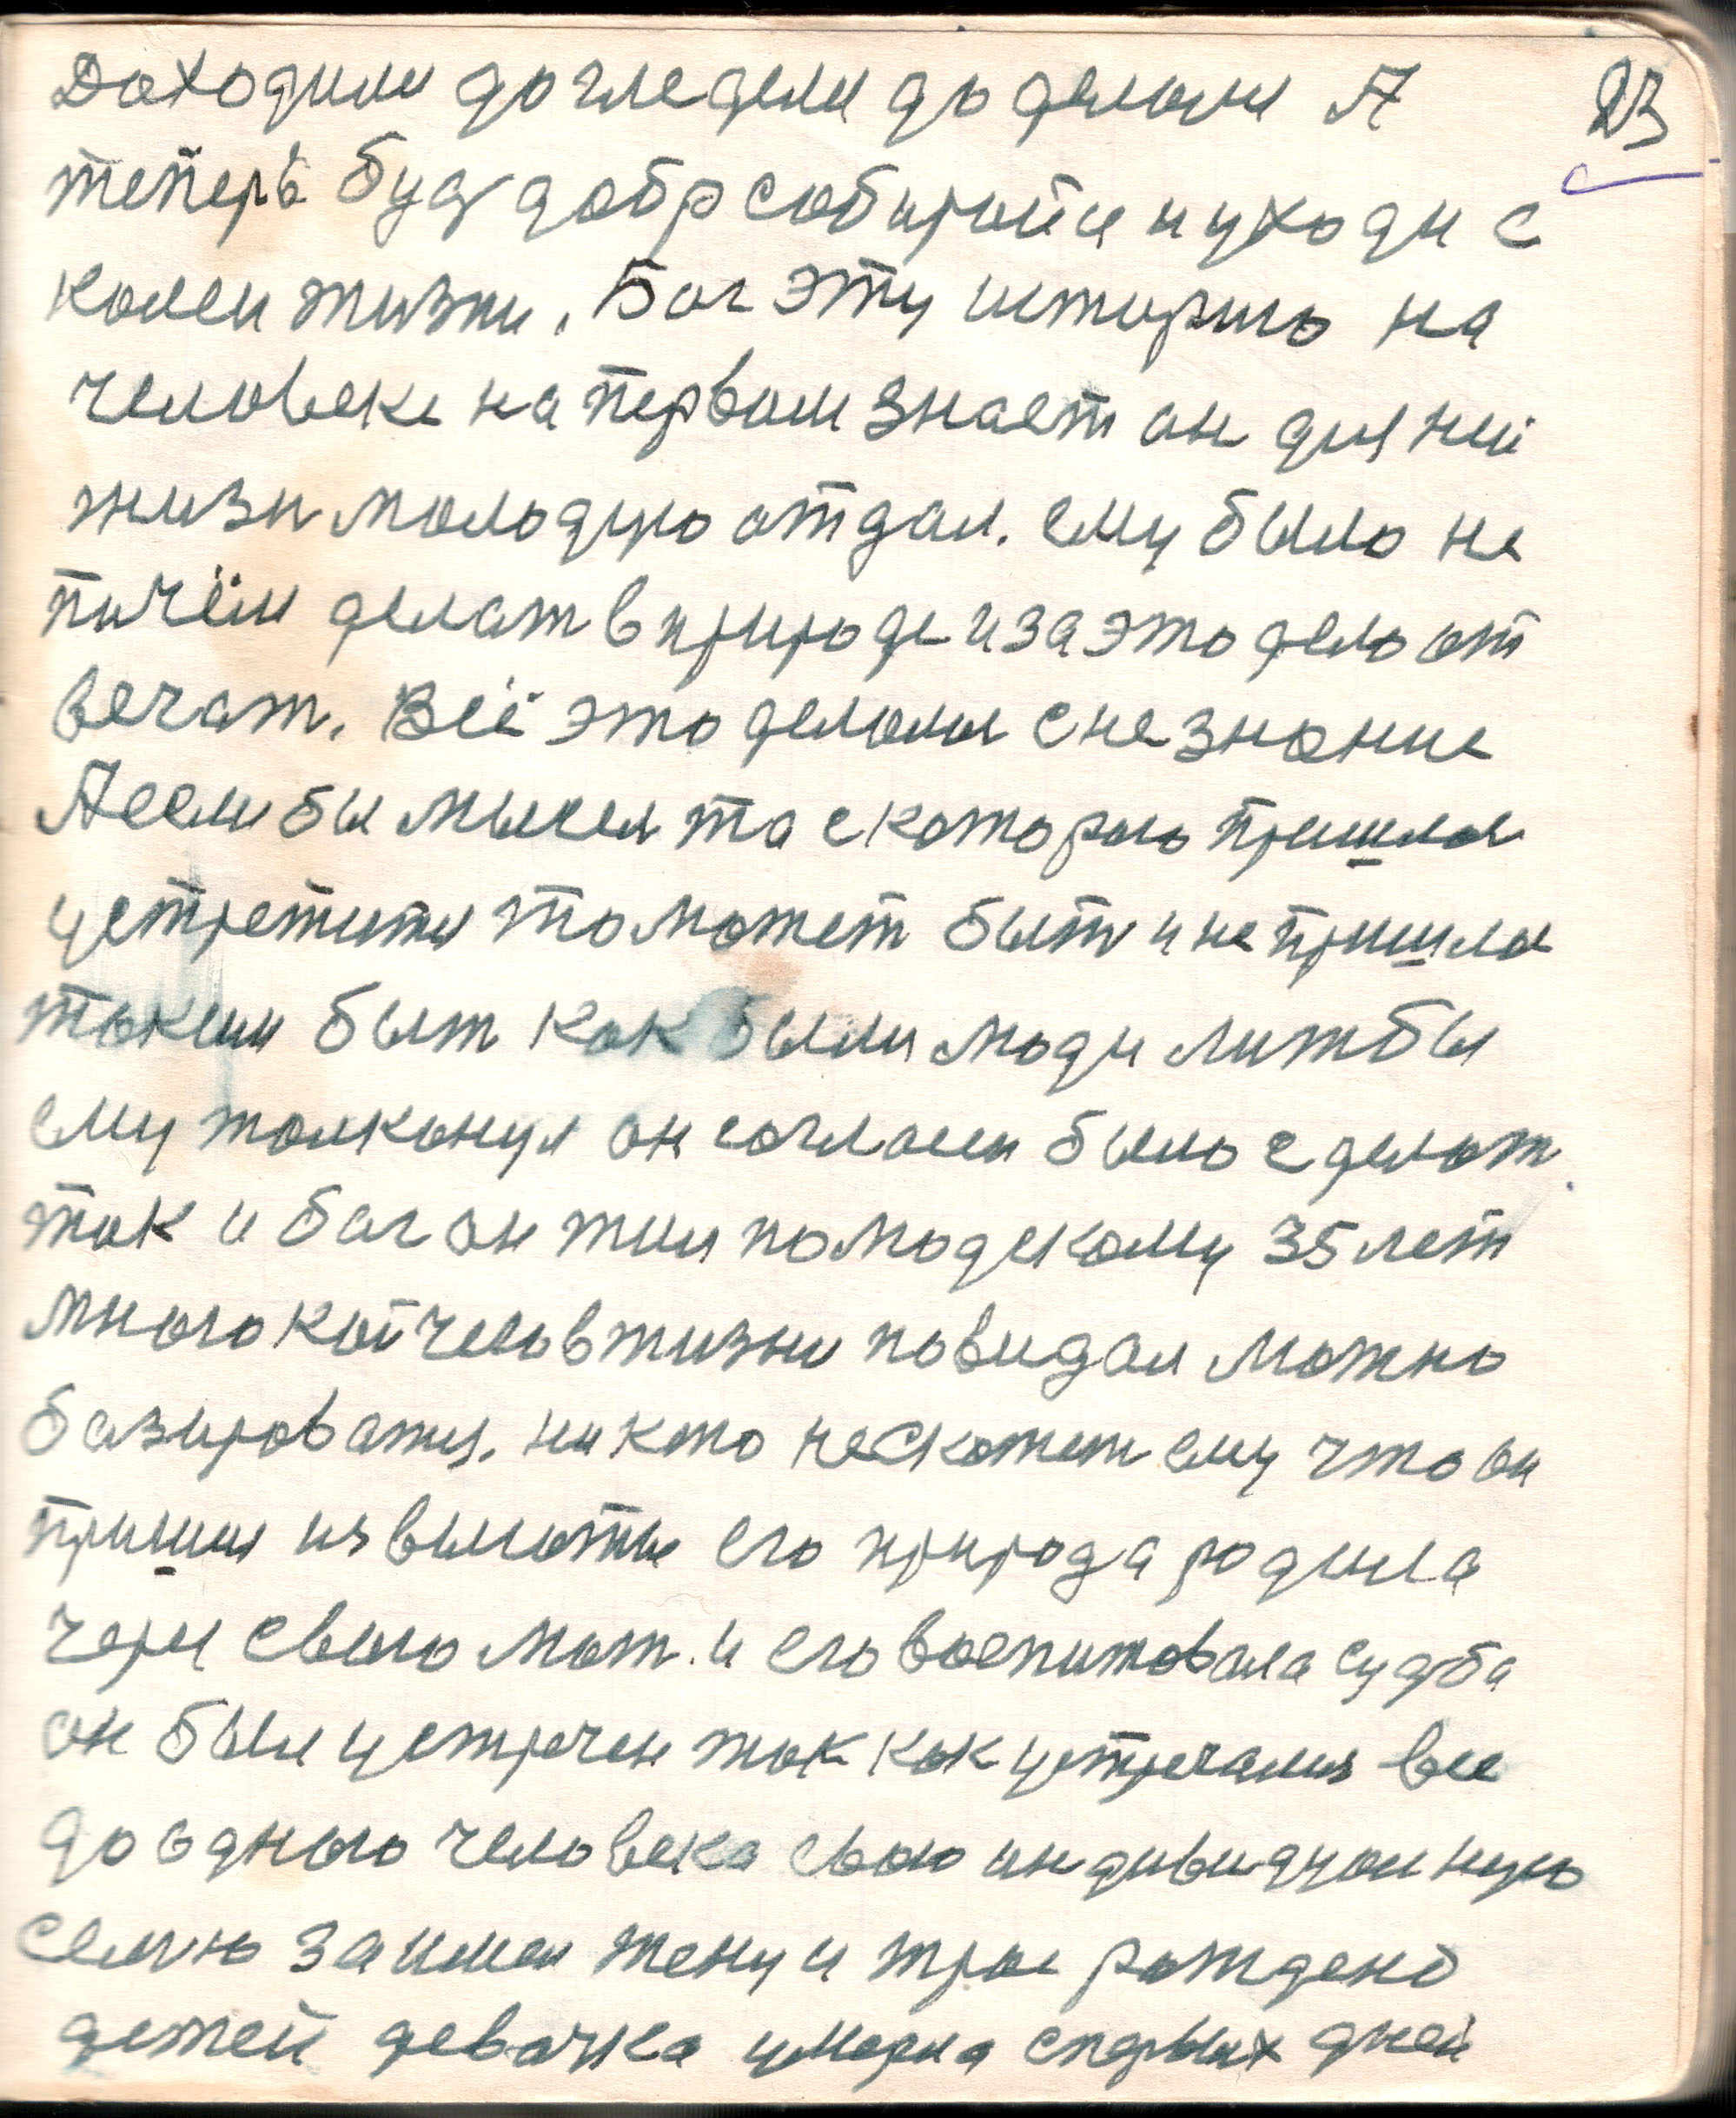 Доходили до гледели до делали А
23
теперь буд добр собирайся и уходи с
комеи жизни. Бог эту историю на
человеке на первом знает он для ней
жизн молодую отдал. ему было не
почём делат в природе и за это дело от
вечат. Всё это делали с незнание
А если бы мысля та с которою пришлос
устретится то может быт и не пришлос
таким быт как были люди литбы
ему толконул он согласен было сделат.
так и бог он жил по людскому 35 лет
много кой чего в жизни повидал можно
базироватся. никто нескожет ему что он
пришол из высоты его природа родила
через свою мат. и его воспитовала судба
он был устречен так как устречался все
до одного человека свою индивидуалную
семю заимел жену и трое рождено
детей девачка умерла спервых дней